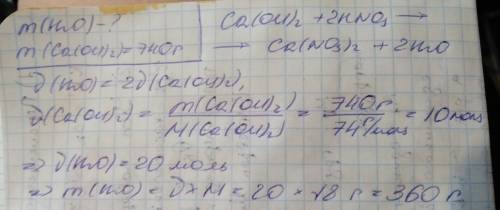 m(H₂O) - ?
Ca(OH)₂ + 2HNO₃ →
m(Ca(OH)₂) = 740г
→ Ca(NO₃)₂ + 2H₂O
ν(H₂O) = 2ν(Ca(OH)₂),
ν(Ca(OH)₂) = m(Ca(OH)₂) / M(Ca(OH)₂) = 740г / 74г/моль = 10моль
⇒ ν(H₂O) = 20 моль
⇒ m(H₂O) = ν × M = 20 × 18 г = 360 г